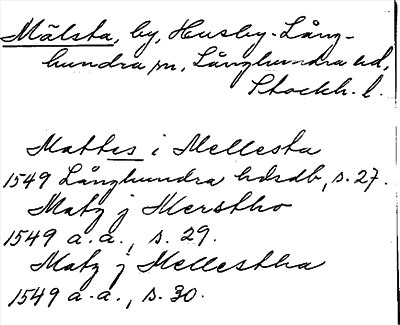 Mälsta, by, Husby-Lång-
hundra sn, Långhundra hd,
Stockh. l.
Mattis i Mellesta
1549 Långhundra hdsdb, s. 27.
Matz j Merstho
1549 a.a., s. 29.
Matz j Mellestha
1549 a.a., s. 30.